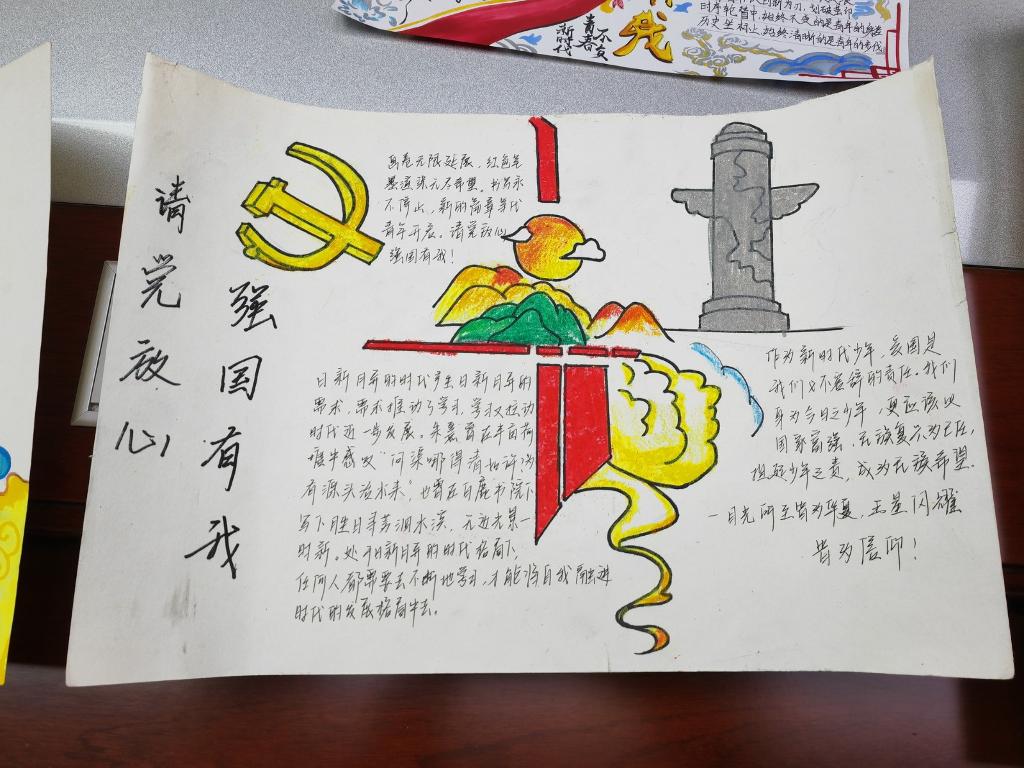 请党放心
强国有我
画卷无限延展，红色笔
墨道张元不希望。书写永
不停止，新的篇章等代
青年开启。请党放心，
强国有我！
日新月异的时代产生日新月异的
需求，需求推动了学习，学习又拉动
时代进一步发展。朱熹曾在半亩荷
塘中感叹“问渠哪得清如许，为
有源头活水来”，也曾在白鹿书院下
写下胜日寻芳泗水滨，无边光景一
时新。处于日新月异的时代格局下，
任何人都需要去不断地学习，才能将自我融进
时代的发展格局中去。
作为新时代少年，爱国是
我们义不容辞的责任。我们
身为今日之少年，更应该以
国家富强、民族复兴为己任，
担起少年之责，成为民族希望.
一目光所至皆为华夏，五星闪耀
皆为信仰！
我
青春不负
新时代
时序轮替中，始终不变的是青年的
历史坐标上，始终清晰的是青年的步伐